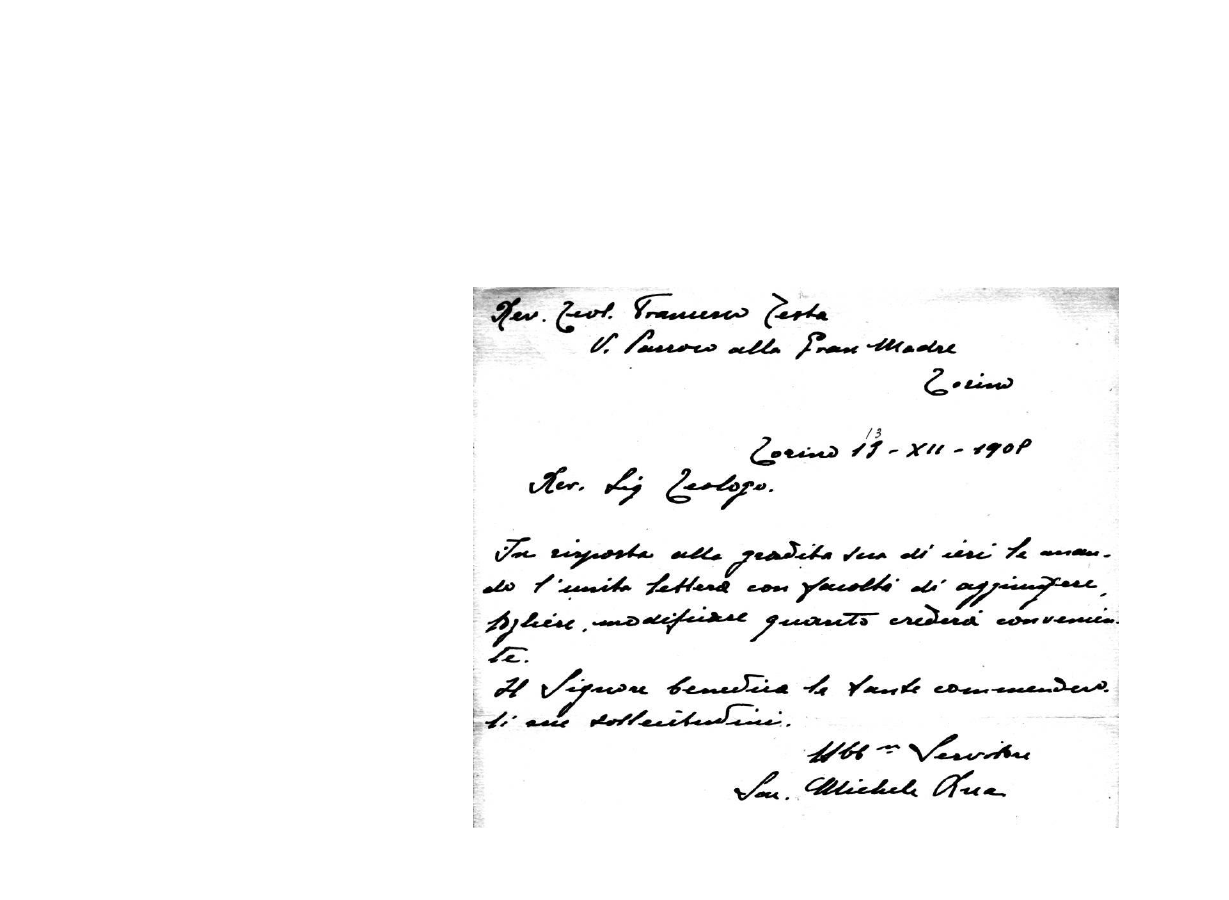 Rev. Teol. Francesco Testa
V. Parroco alla Gran Madre
Torino
13
Torino 13 - XII - 1908
Rev. Sig Teologo.
In risposta alla gradita sua di ieri le man-
do l'unita lettera con facoltà di aggiungere,
togliere, modificare quanto crederà convenien-
te.
Il Signore benedica le sante commendevo-
li sue sollecitudini.
Obb mo Servitore
Sac. Michele Rua